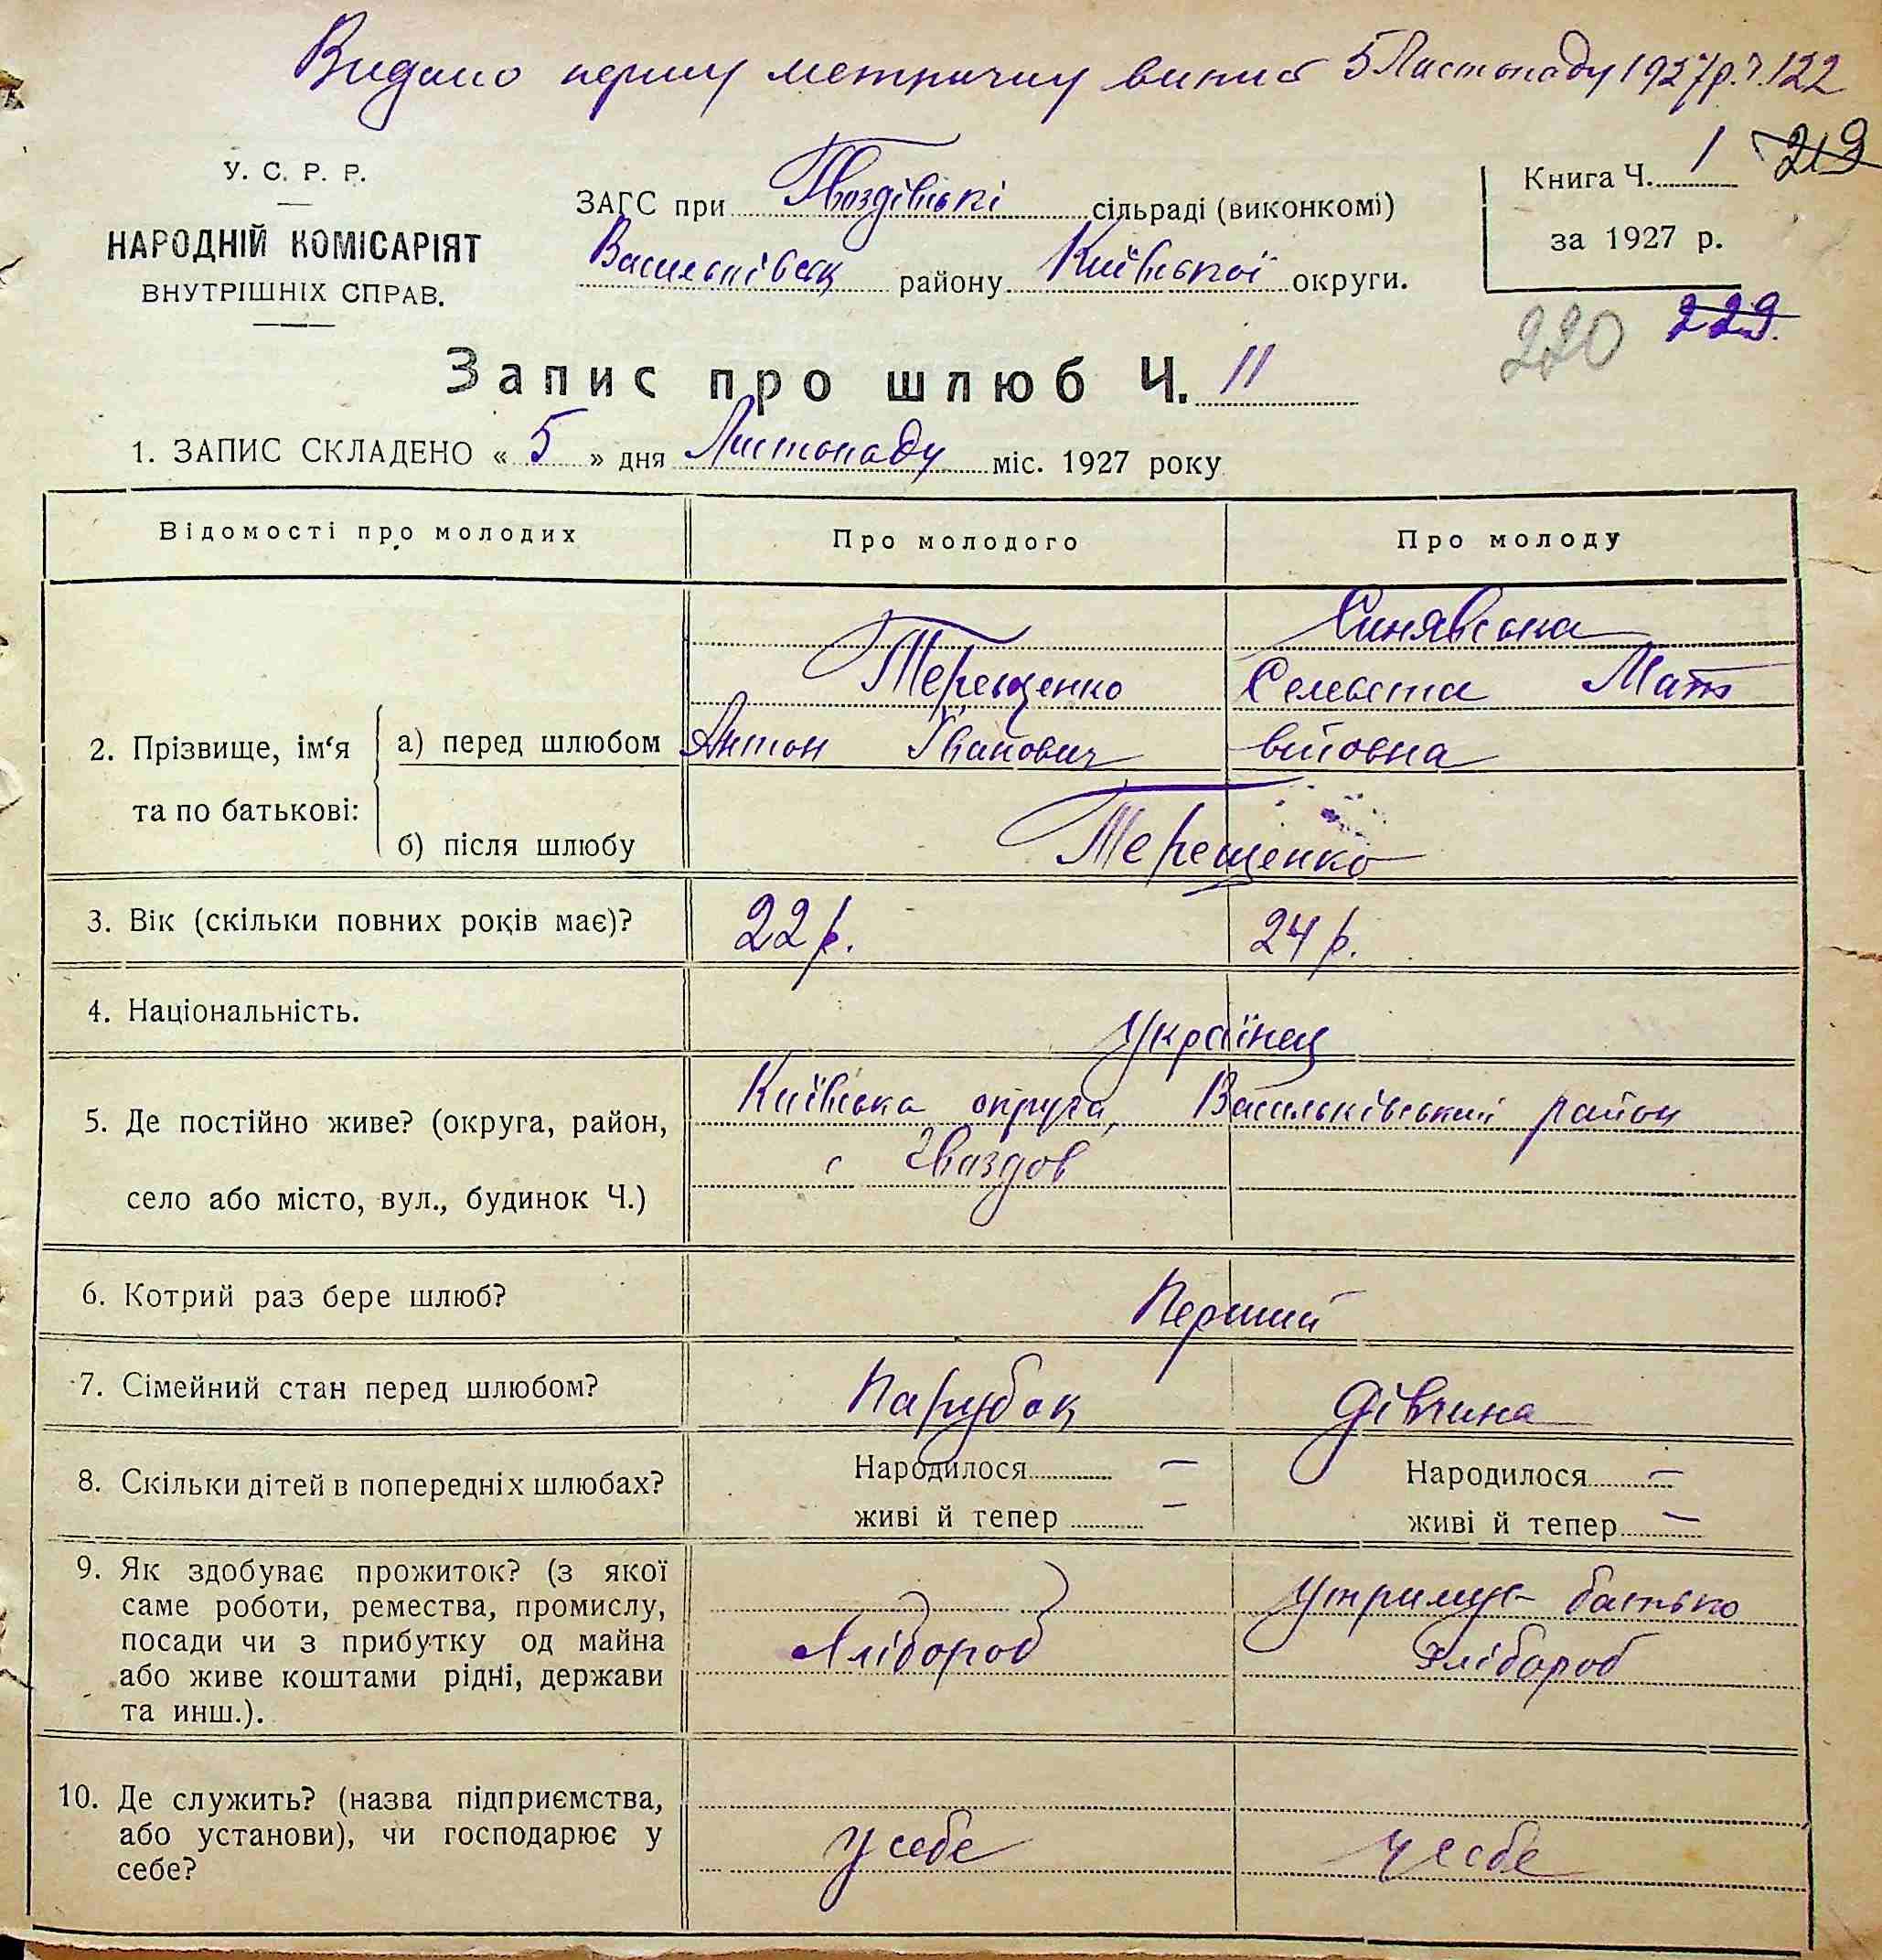 Видано першу метричну випис 5 Листопаду 1927р. Ч. 122
У. С. Р. Р.
НАРОДНІЙ КОМІСАРІЯТ
ВНУТРІШНІХ СПРАВ.
ЗАГС при Гвоздівські сільраді (виконкомі)
Васильківськ району Київської округи.
Книга Ч. 1 219
за 1927 р.
220 229.
Запис про шлюб Ч. 11
1. ЗАПИС СКЛАДЕНО « 5 » дня Листопаду міс. 1927 року
Відомості про молодих Про молодого Про молоду
2. Прізвище, ім‘я та по батькові:
а) перед шлюбом
Терещенко
Антон Іванович
Синявська
Мат
війовна
б) після шлюбу Терещенко
3. Вік (скільки повних років має)? 22 р. 24 р.
4. Національність. Українец
5. Де постійно живе? (округа, район,
село або місто, вул., будинок Ч.)
Київська округа, Васильківський район
с Гваздов
6. Котрий раз бере шлюб? Перший
7. Сімейний стан перед шлюбом? Парубок Дівчина
8. Скільки дітей в попередніх шлюбах? Народилося — Народилося —
живі й тепер — живі й тепер —
9. Як здобуває прожиток? (з якої
саме роботи, ремества, промислу,
посади чи з прибутку од майна
або живе коштами рідні, держави
та инш.).
Хлібороб
Утримує батько
Хлібороб
10. Де служить? (назва підприємства,
або установи), чи господарює у
себе?
У себе У себе